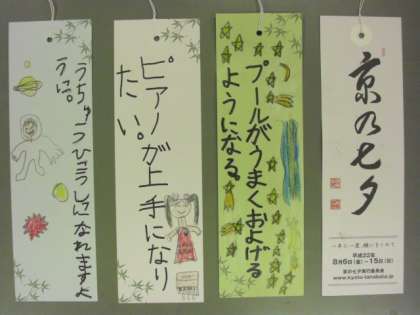 うちゅうひこうしになれますよ
うに。
ピアノが上手になり
たい。
プールがうまくおよげる
ようになる。
京乃七夕
一年に一度、願いをこめて
平成22年
8月6日(金)~15日(日)
京の七夕実行委員会
www.kyoto-tanabata.jp